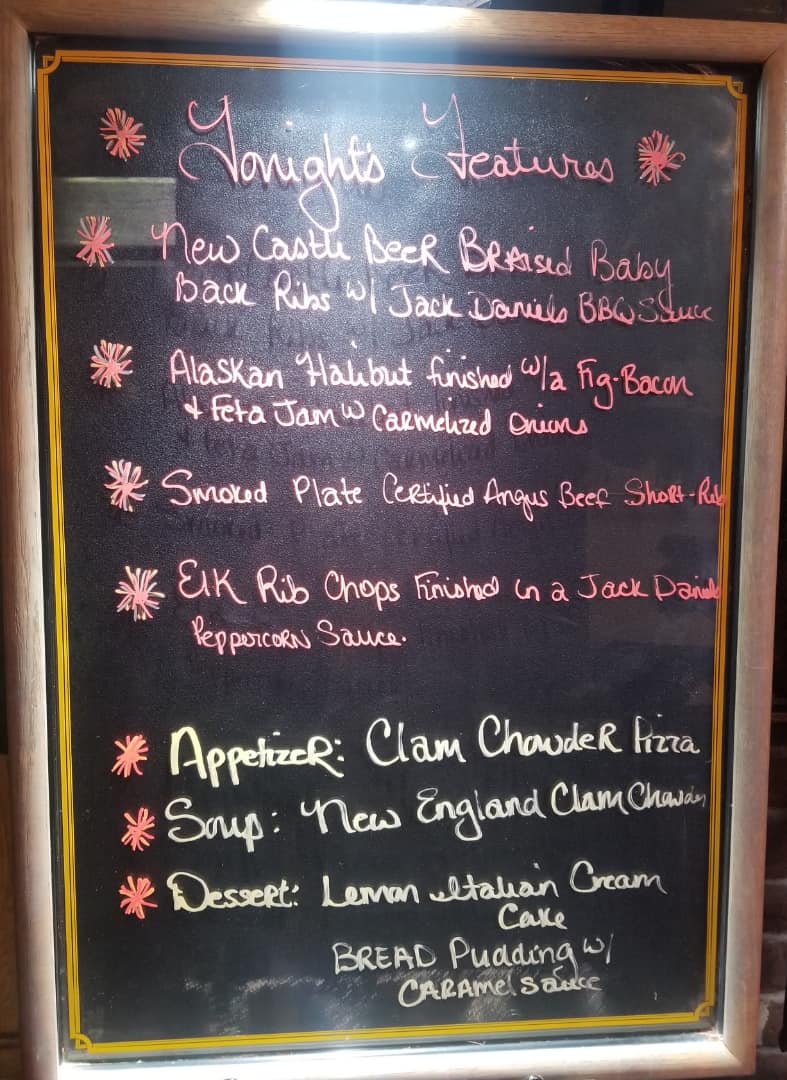 Tonight's Features
New Castle Beer Braised Baby
Back Ribs w/ Jack Daniels BBQ Sauce
Alaskan Halibut finished w/a Fig-Bacon
& Feta Jam w Carmelized Onions
Smoked Plate Certified Angus Beef Short-Rib
Elk Rib Chops Finished in a Jack Daniels
Peppercorn Sauce.
Appetizer: Clam Chowder Pizza
Soup: New England Clam Chowder
Dessert: Lemon Italian Cream
Cake
BREAD Pudding w/
CARAMel Sauce